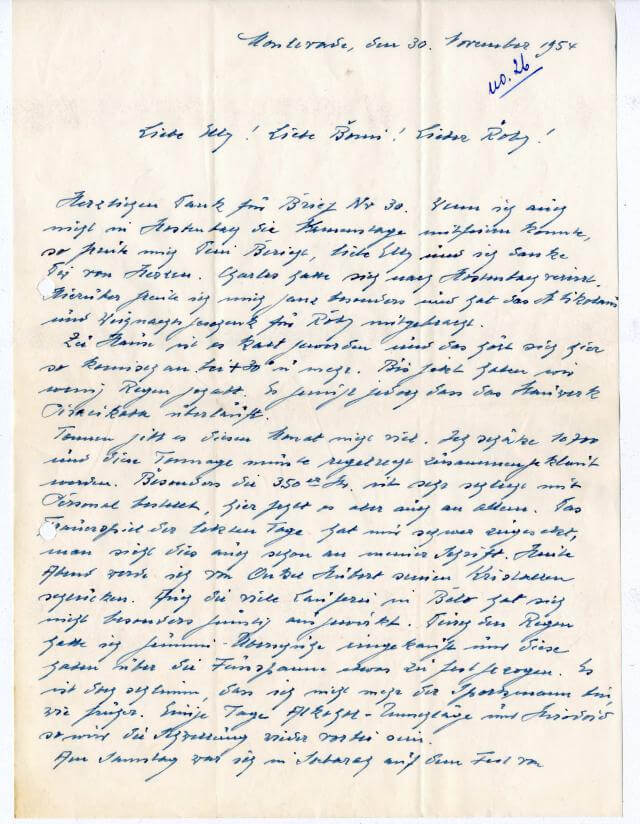 Monlevade, den 30. November 1954
no. 26
Liebe Elly! Liebe Bomi! Lieber Röby!
Herzlichen Dank für Brief Nr 30. Wenn ich auch
nicht in Hostenbach die Namenstage mitfeiern konnte,
so freute mich Dein Bericht, liebe Elly und ich danke
Dir von Herzen. Charles hatte sich nach Hostenbach verirrt.
Hierüber freute ich mich ganz besonders und hat das St Nikolaus
und Weihnachtsgeschenk für Röby mitgebracht.
Zu Hause ist es kalt geworden und das hört sich hier
so komisch an bei + 30° u mehr. Bis jetzt haben wir
wenig Regen gehabt. Es genügt jedoch dass das
Piracikaba überläuft.
Tonnen gibt es diesen Monat nicht viel. Ich schätze 10700
und diese Tonnage müsste regelrecht
werden. Besonders die 350er Str. ist sehr schlecht mit
Personal bestellt, hier fehlt es aber auch an allem. Das
Trauerspiel der letzten Tage hat mir schwer zugesetzt,
man sieht dies auch schon an meiner Schrift. Heute
Abend werde ich von Onkel Hubert seinen Kristallen
schlucken. Auch die viele Lauferei in Belo hat sich
nicht besonders günstig ausgewirkt. Durch den Regen
hatte ich Gummi Überschuhe eingekauft und diese
haben über die Fussspanne etwas zu fest gezogen. Es
ist doch schlimm, dass ich nicht mehr der Sportsmann bin,
wie früher. Einige Tage Alkohol-Umschläge und
so wird die Schwellung wieder vorbei sein.
Am Samstag war ich in Sabara auf dem Fest von